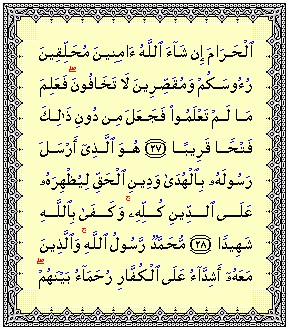 ٱلْحَرَامَ إِن شَآءَ ٱللَّهُ ءَامِنِينَ مُحَلِّقِينَ
رُءُوسَكُمْ وَمُقَصِّرِينَ لَا تَخَافُونَۖ فَعَلِمَ
مَا لَمْ تَعْلَمُوا۟ فَجَعَلَ مِن دُونِ ذَٰلِكَ
فَتْحًا قَرِيبًا ٢٧ هُوَ ٱلَّذِىٓ أَرْسَلَ
رَسُولَهُۥ بِٱلْهُدَىٰ وَدِينِ ٱلْحَقِّ لِيُظْهِرَهُۥ
عَلَى ٱلدِّينِ كُلِّهِۦۚ وَكَفَىٰ بِٱللَّهِ
شَهِيدًا ٢٨ مُّحَمَّدٌ رَّسُولُ ٱللَّهِۚ وَٱلَّذِينَ
مَعَهُۥٓ أَشِدَّآءُ عَلَى ٱلْكُفَّارِ رُحَمَآءُ بَيْنَهُمْۖ